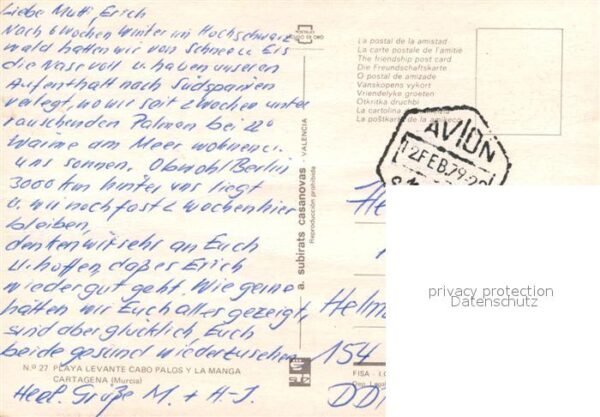 Liebe Mutti, Erich
Nach 6 Wochen Winter im Hochschwarz
wald hatten wir von Schnee u. Eis
die Nase voll u. haben unseren
Aufenthalt nach Südspanien
verlegt, wo wir seit 2 Wochen unter
rauschenden Palmen bei 22°
Wärme am Meer wohnen u.
uns sonnen. Obwohl Berlin
3000 km hinter uns liegt
u. wir noch fast 2 Wochen hier
bleiben,
denken wir sehr an Euch
u. hoffen, daß es Erich
wieder gut geht. Wie gerne
hätten wir Euch alles gezeigt,
sind aber glücklich, Euch
beide gesund wiederzusehen
N.º 27 PLAYA LEVANTE CABO PALOS Y LA MANGA
CARTAGENA (Murcia)
Herzl. Grüße M. + H-J.
a. subirats casanovas - VALENCIA
Reproducción prohibida
La postal de la amistad
La carte postale de l'amitié
The friendship post card
Die Freundschaftskarte
O postal de amizade
Vanskopens vykort
Vriendelyke groeten
Otkritka druchbi
La cartolina
La poŝtkarto de la amikeco
AVION
12 FEB.79-20
He
Helm
154
DD
FISA - I.G
Dep. Legal
privacy protection
Datenschutz